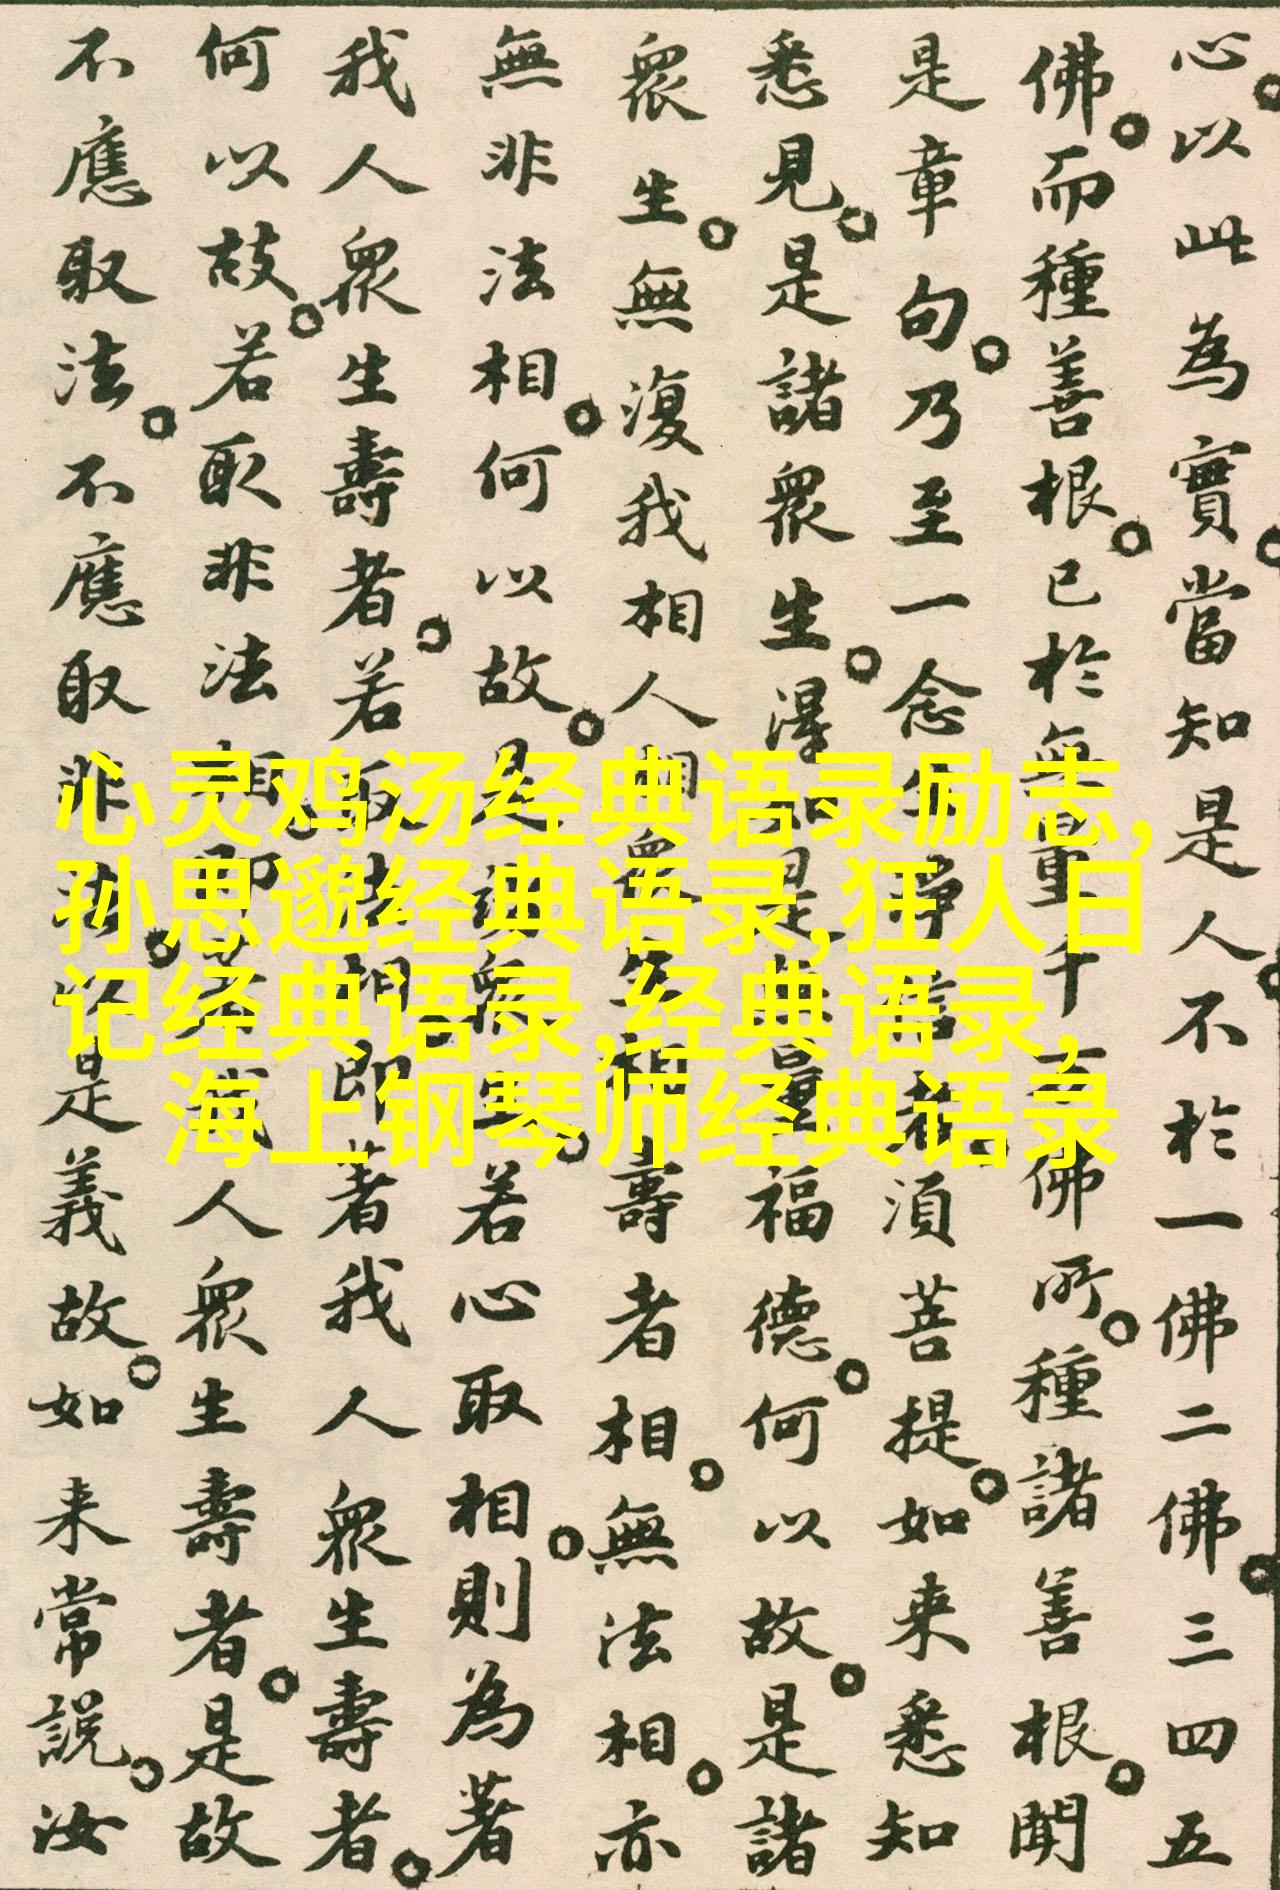 心。以此為實。當知是人。不於一佛二佛。三四五
佛。而種善根。已於無量千万佛所。種諸善根。聞
是章句。乃至一念生淨信者。須菩提。如来悉知
悉見。是諸眾生。得如是無量福德。何以故。是諸
眾生。無復我相人相眾生相壽者相。無法相。亦
無非法相。何以故。是諸眾生。若心取相。則為著
我人眾生壽者。若取法相。即著我人眾生壽者。
何以故。若取非法相。即著我人眾生壽者。是故
不應取法。不應取非法。以是義故。如来常説。汝
心灵鸡汤经典语录励志,
孙思邈经典语录,狂人日
记经典语录,经典语录,
海上钢琴师经典语录